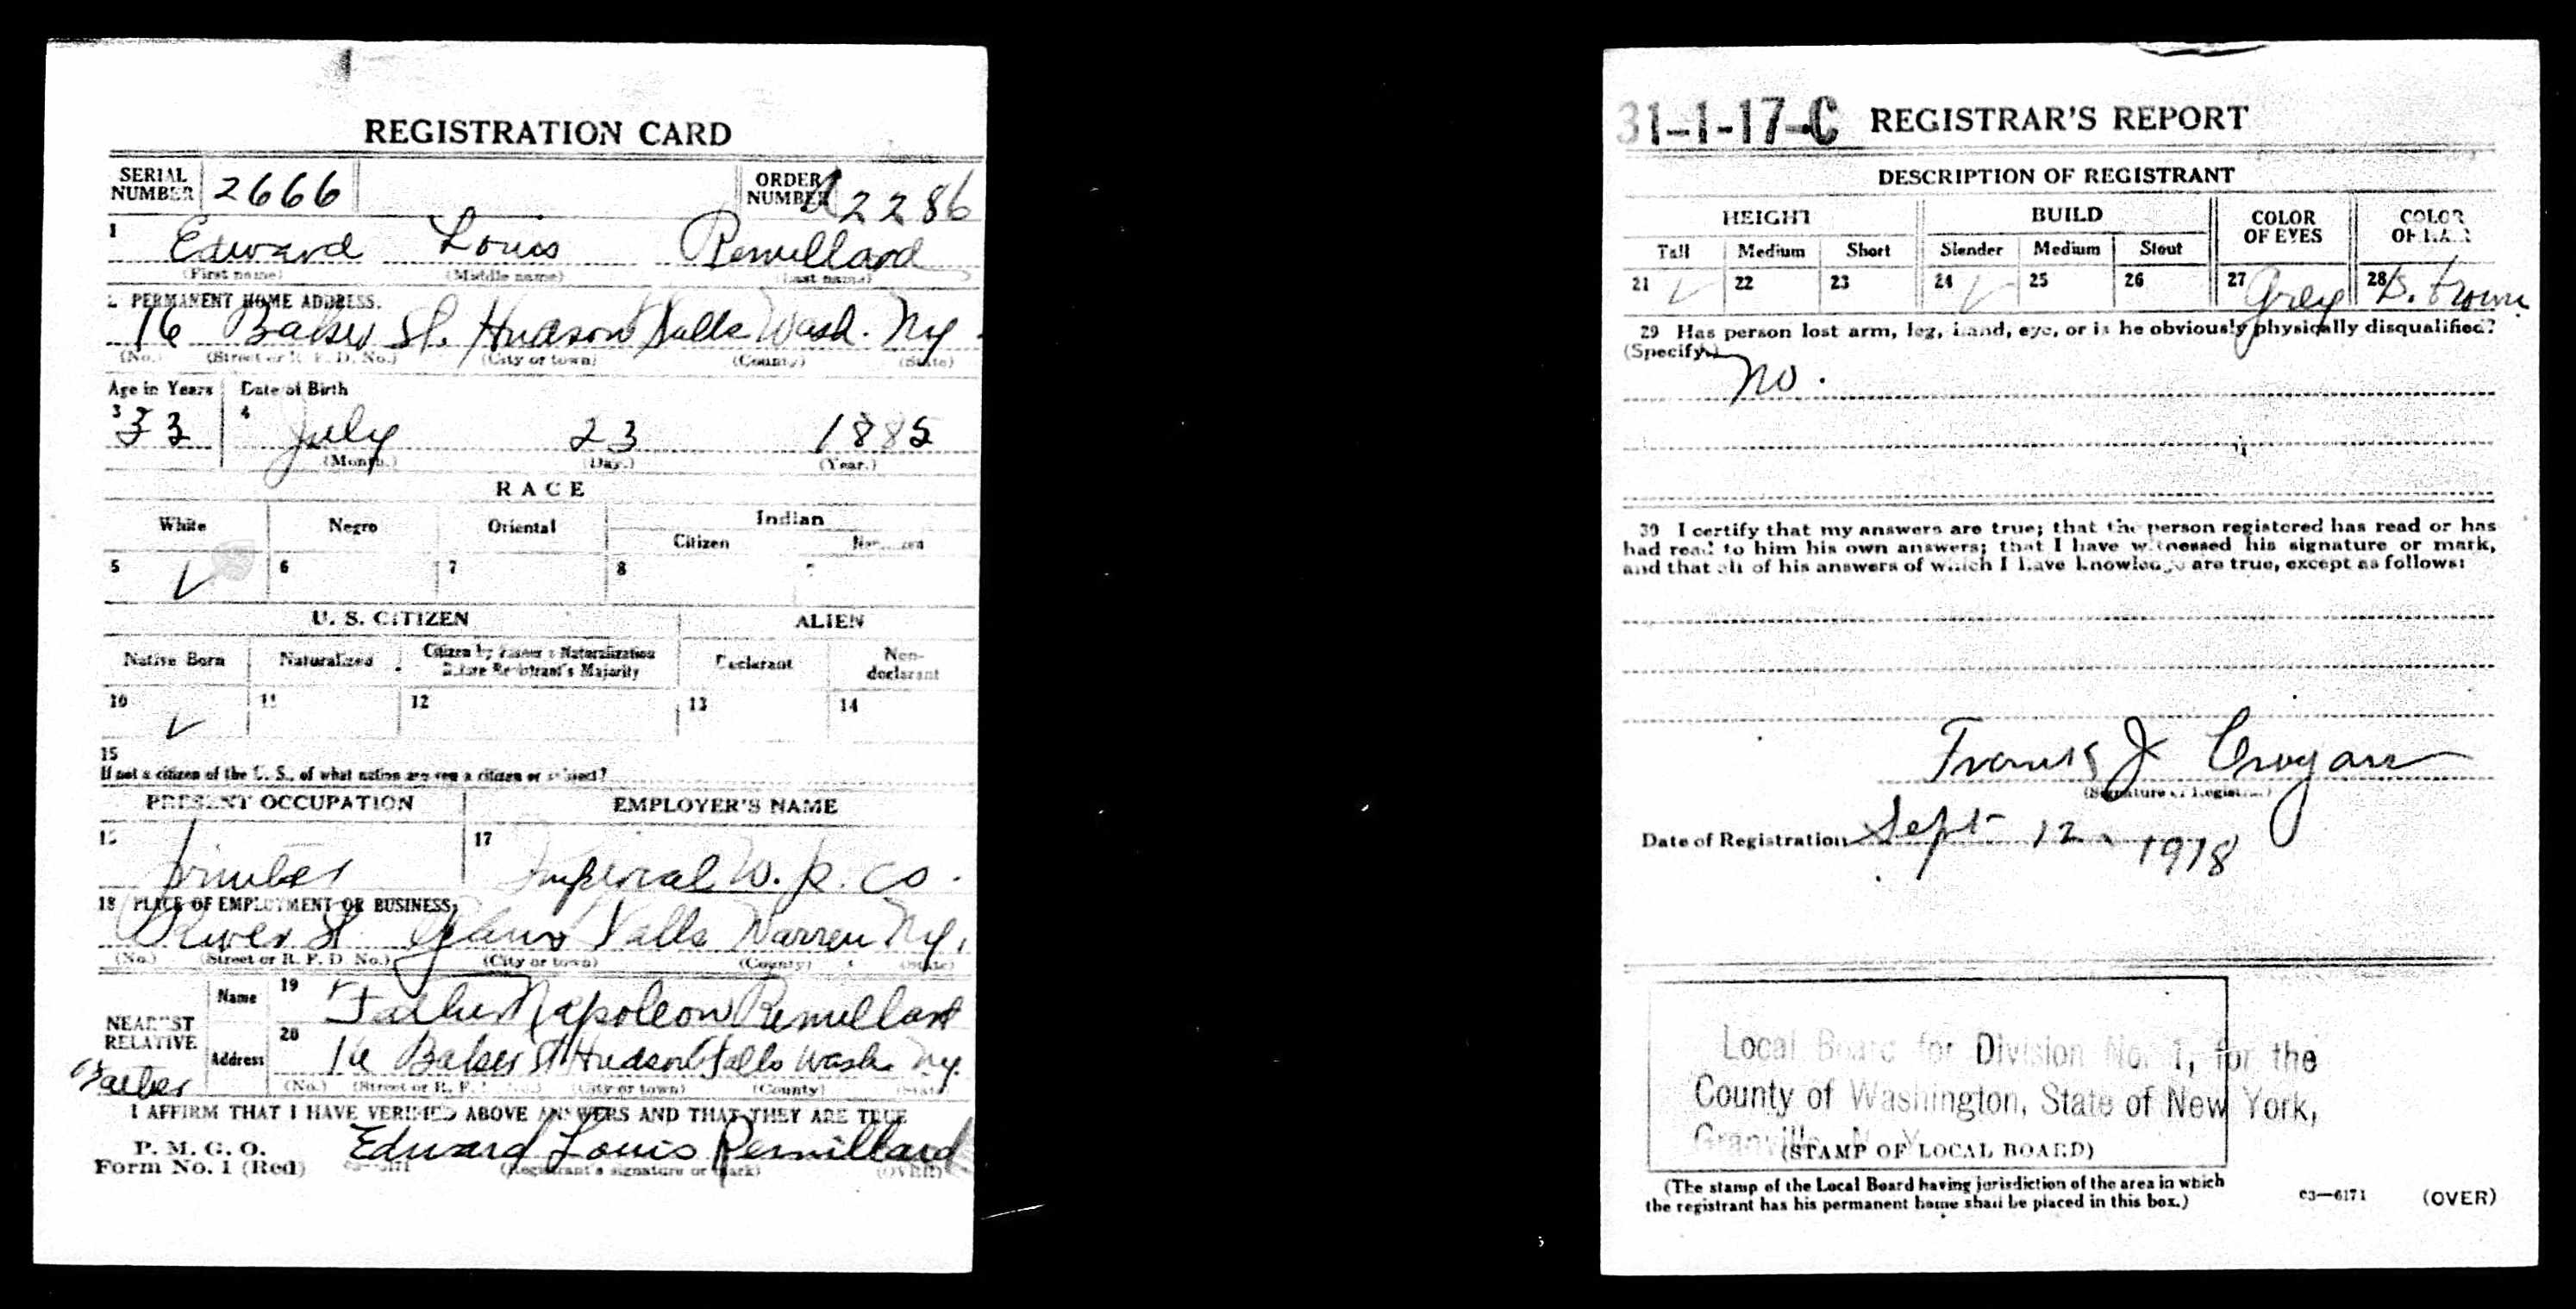 REGISTRATION CARD
SERIAL NUMBER 2666 ORDER NUMBER A2286
1 Edward Louis Remillard
(First name) (Middle name) (Last name)
2 PERMANENT HOME ADDRESS.
16 Baker St. Hudson Falls Wash. Ny.
(No.) (Street or R. F. D. No.) (City or town) (County) (State)
Age in Years Date of Birth
3 33 4 July 23 1885
(Month.) (Day.) (Year.)
RACE
White Negro Oriental Indian
Citizen
5 ✓ 6 7 8
U. S. CITIZEN ALIEN
Native Born Naturalized Citizen by Father's Naturalization Before Registrant's Majority Declarant Non-declarant
10 ✓ 11 12 13 14
15
If not a citizen of the U. S., of what nation are you a citizen or subject?
PRESENT OCCUPATION EMPLOYER'S NAME
16 printer 17 Imperial W. P. Co.
18 PLACE OF EMPLOYMENT OR BUSINESS:
River St Glens Falls Warren Ny.
(No.) (Street or R. F. D. No.) (City or town) (County) (State)
NEAREST RELATIVE
Name 19 Father Napoleon Remillard
Address 20 16 Baker St Hudson Falls Wash. Ny.
(No.) (Street or R. F. D. No.) (City or town) (County) (State)
I AFFIRM THAT I HAVE VERIFIED ABOVE ANSWERS AND THAT THEY ARE TRUE
P. M. G. O.
Form No. 1 (Red) 03—6171 Edward Louis Remillard
(Registrant's signature or mark) (OVER)
31-1-17-C REGISTRAR'S REPORT
DESCRIPTION OF REGISTRANT
HEIGHT BUILD COLOR OF EYES COLOR OF HAIR
Tall Medium Short Slender Medium Stout
21 ✓ 22 23 24 ✓ 25 26 27 Grey 28 D. brown
29 Has person lost arm, leg, hand, eye, or is he obviously physically disqualified?
(Specify.)
no.
30 I certify that my answers are true; that the person registered has read or has
had read to him his own answers; that I have witnessed his signature or mark,
and that all of his answers of which I have knowledge are true, except as follows:
Frank J
(Signature of Registrar)
Date of Registration Sept 12 1918
Local Board for Division No. 1, for the
County of Washington, State of New York,
Granville, N. Y.
(STAMP OF LOCAL BOARD)
(The stamp of the Local Board having jurisdiction of the area in which
the registrant has his permanent home shall be placed in this box.)
03—6171 (OVER)